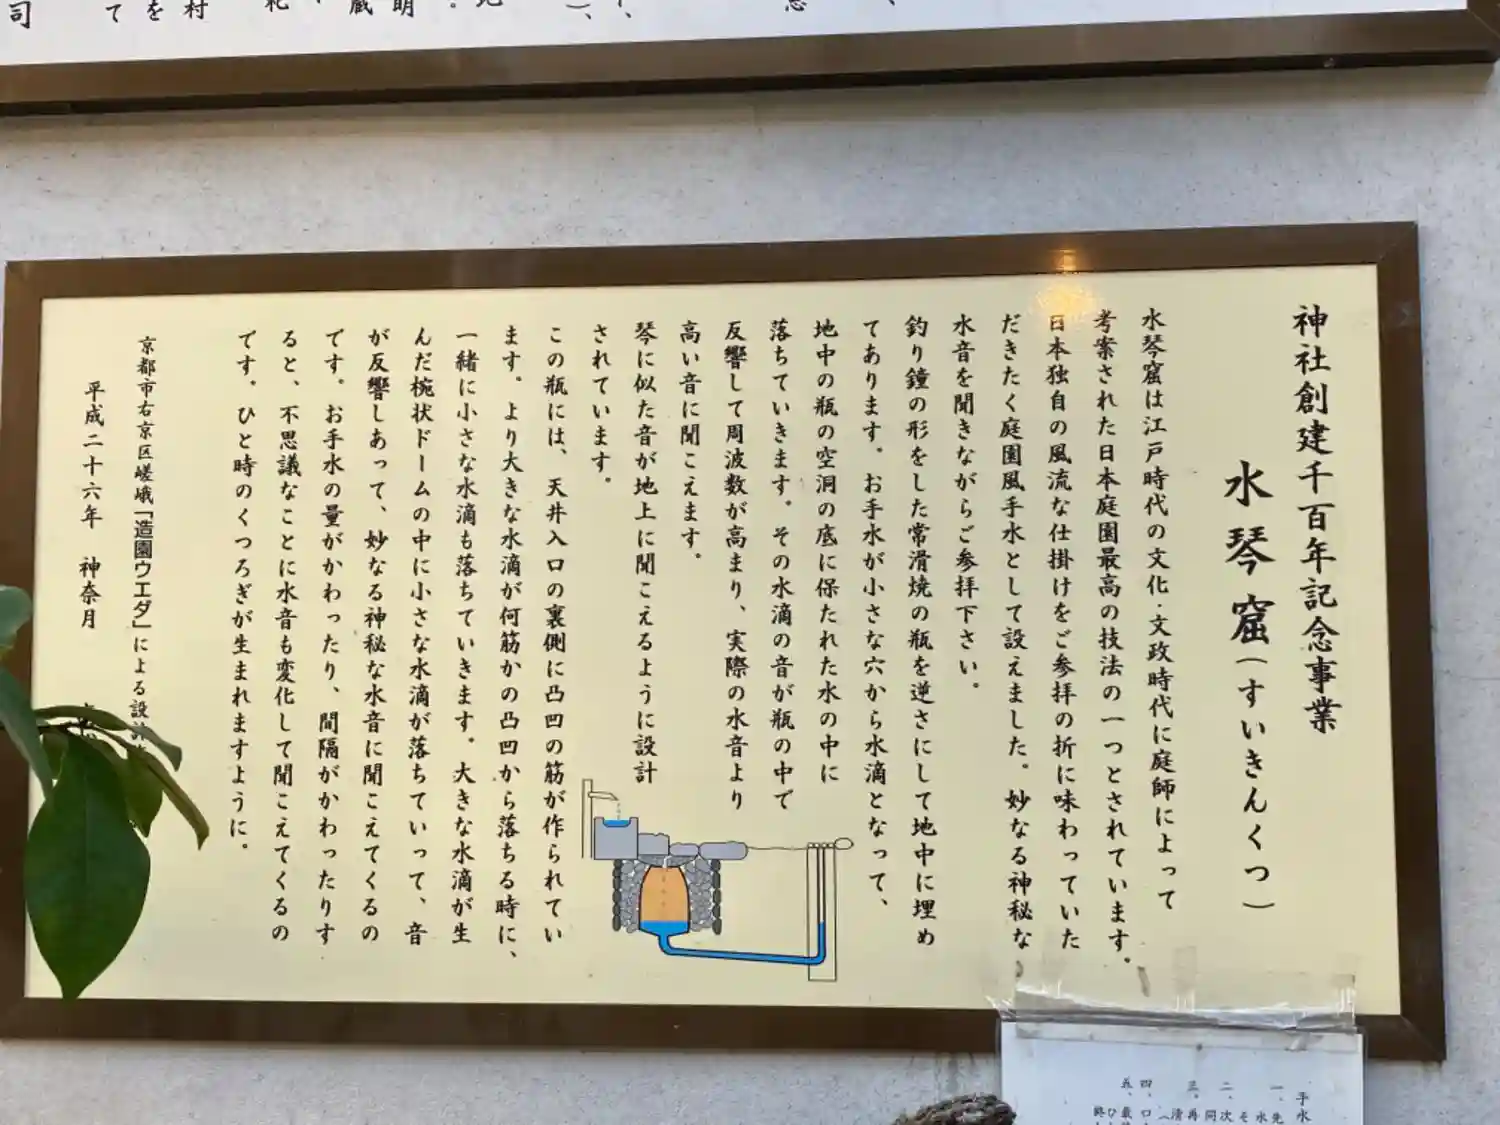 神社創建千百年記念事業
水琴窟(すいきんくつ)
水琴窟は江戸時代の文化・文政時代に庭師によって
考案された日本庭園最高の技法の一つとされています。
日本独自の風流な仕掛けをご参拝の折に味わっていた
だきたく庭園風手水として設えました。妙なる神秘な
水音を聞きながらご参拝下さい。
釣り鐘の形をした常滑焼の瓶を逆さにして地中に埋め
てあります。お手水が小さな穴から水滴となって、
地中の瓶の空洞の底に保たれた水の中に
落ちていきます。その水滴の音が瓶の中で
反響して周波数が高まり、実際の水音より
高い音に聞こえます。
琴に似た音が地上に聞こえるように設計
されています。
この瓶には、天井入口の裏側に凸凹の筋が作られてい
ます。より大きな水滴が何筋かの凸凹から落ちる時に、
一緒に小さな水滴も落ちていきます。大きな水滴が生
んだ椀状ドームの中に小さな水滴が落ちていって、音
が反響しあって、妙なる神秘な水音に聞こえてくるの
です。お手水の量がかわったり、間隔がかわったりす
ると、不思議なことに水音も変化して聞こえてくるの
です。ひと時のくつろぎが生まれますように。
京都市右京区嵯峨「造園ウエダ」による設計
平成二十六年 神奈月
手水